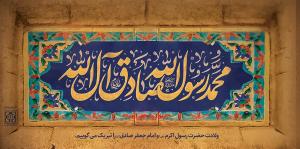 محمد رسول الله صادق آل الله
ولادت حضرت رسول اکرم و امام جعفر صادق را تبریک می گوییم.